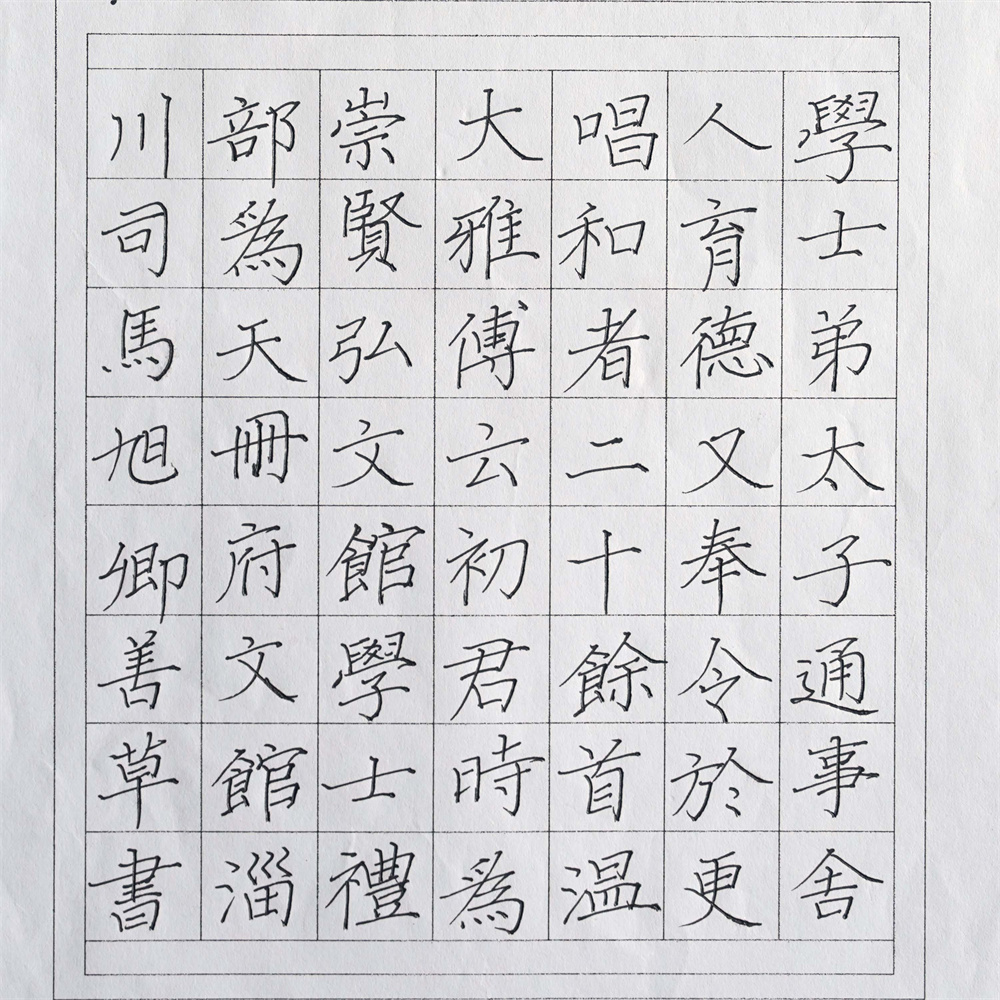 學士弟太子通事舍
人育德又奉令於更
唱和者二十餘首温
大雅傅云初君時為
崇賢弘文館學士禮
部為天冊府文館淄
川司馬旭卿善草書